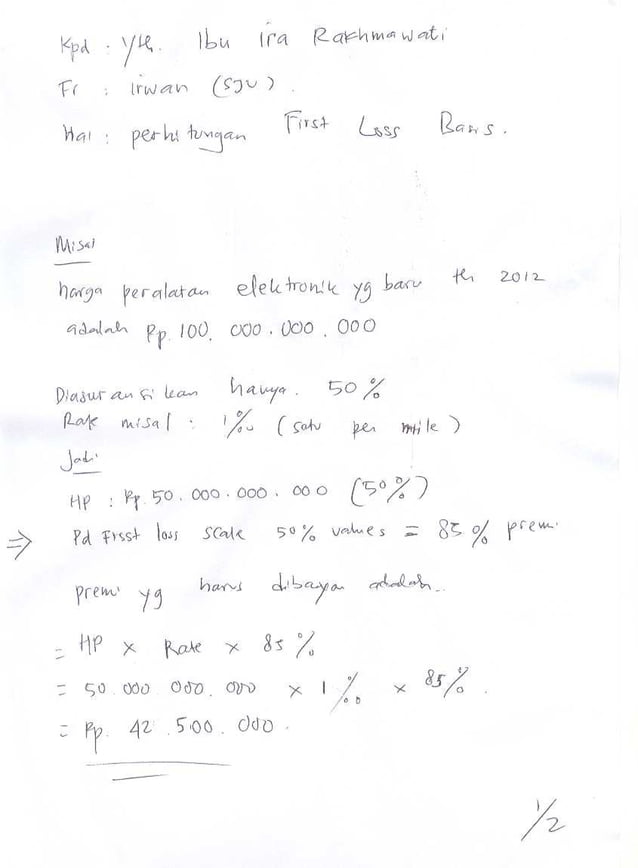 Kpd : Yth. Ibu Ira Rakhmawati
Fr : irwan (SJU).
Hal : perhitungan First Loss Basis.
Misal
harga peralatan elektronik yg baru th 2012
adalah Rp. 100. 000. 000. 000
Diasuransikan hanya. 50%
Rate misal : 1‰ (satu per mile)
Jadi
HP : Rp. 50. 000. 000. 000 (50%)
⇒ Pd First loss scale 50% values = 85% premi
premi yg harus dibayar adalah..
= HP x Rate x 85%
= 50 000 000. 000 x 1‰ x 85%.
= Rp. 42. 500. 000.
1/2